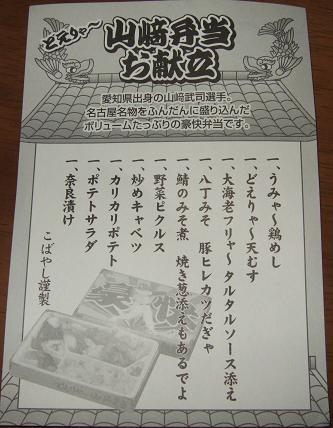 どえりゃ～
山﨑弁当
お献立
愛知県出身の山﨑武司選手。
名古屋名物をふんだんに盛り込んだ
ボリュームたっぷりの豪快弁当です。
一、うみゃ～鶏めし
一、どえりゃ～天むす
一、大海老フリャ～タルタルソース添え
一、八丁みそ 豚ヒレカツだぎゃ
一、鯖のみそ煮 焼き葱添えもあるでよ
一、野菜ピクルス
一、炒めキャベツ
一、カリカリポテト
一、ポテトサラダ
一、奈良漬け
こばやし謹製